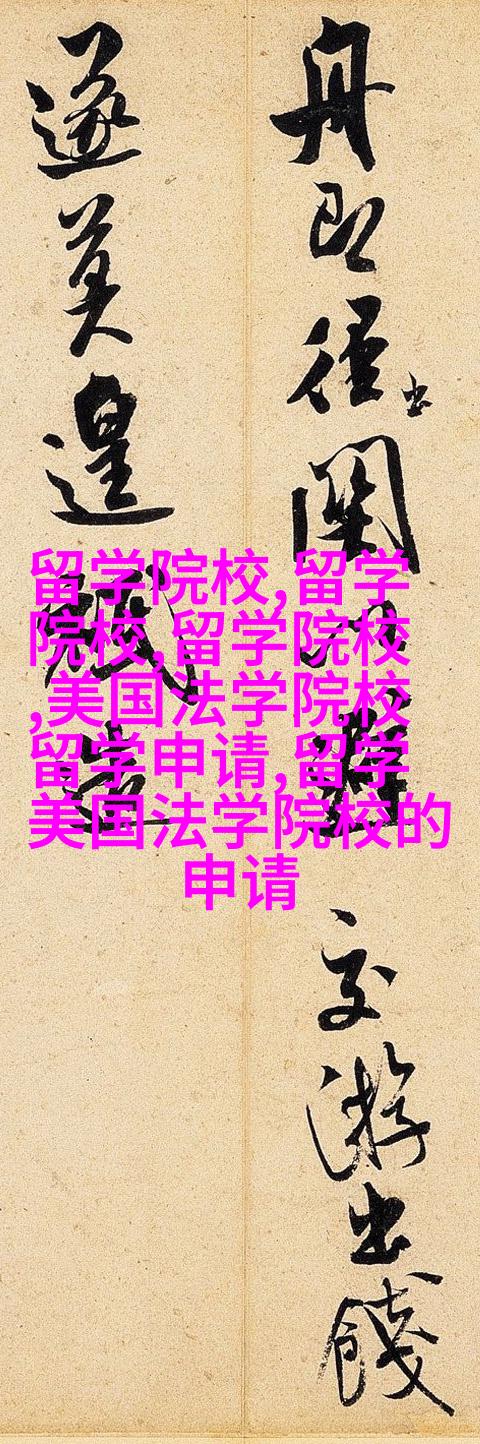 舟即径出
開
交游出餞
遂莫遑
賦
留学院校,留学
院校,留学院校
,美国法学院校
留学申请,留学
美国法学院校的
申请